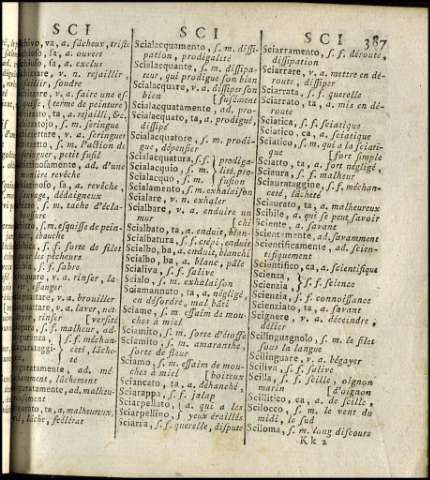 SCI
SCI
SCI
387
chivo, va, a. fâcheux, triste
hiuso, sa, a. ouvert
hiuso, sa, a. exclus
chizzare, v. n. rejaillir,
saillir, sourdre
izzare, v. a. faire une es-
quisse, (terme de peinture)
izzato, ta, a. rejailli, &c.
izzatojo, s. m. seringue
izzettare, v. a. seringuer
izzetto, s. m. l'action de
seringuer, petit fusil
ad. d'une
manière revêche
sa, a. revêche,
sauvage, dédaigneux
s. m. tache d'écla-
boussure
s. m. esquisse de pein-
ture, ébauche
s. f. sorte de filet
pour les pêcheurs
s. f. sabre
v. a. rinser, la-
v. a. brouiller
v. a. laver, net-
rinser [versité
s. f. malheur, ad-
s. f. méchan-
ceté, lâche-
té
ad. mé-
chamment, lâchement
ad. malheu-
reusement
ta, a. malheureux,
lâche, scélérat
Scialacquamento, s. m. dissi-
pation, prodigalité
Scialacquante, s. m. dissipa-
teur, qui prodigue son bien
Scialacquare, v. a. dissiper son
bien [fusément
Scialacquatamente, ad. pro-
Scialacquato, ta, a. prodigué,
dissipé
Scialacquatore, s. m. prodi-
gue, dépensier
Scialacquatura, s. f. } prodiga-
Scialacquio, s. m. } lité, pro-
Scialacquo, s. m. } fusion
Scialamento, s. m. exhalaison
Scialare, v. n. exhaler
Scialbare, v. a. enduire un
mur [chi
Scialbato, ta, a. enduit, blan-
Scialbatura, s. f. crépi, enduit
Scialbo, ba, a. enduit, blanchi
Scialbo, ba, a. blanc, pâle
Scialiva, s. f. salive
Scialo, s. m. exhalaison
Sciamannato, ta, a. négligé,
en désordre, mal bâti
Sciame, s. m. essaim de mou-
ches à miel
Sciamito, s. m. sorte d'étoffe
Sciamito, s. m. amaranthe,
sorte de fleur
Sciamo, s. m. essaim de mou-
ches à miel [boiteux
Sciancato, ta, a. déhanché,
Sciarappa, s. f. jalap
Sciarpellato, } a. qui a les
Sciarpellino, } yeux éraillés
Sciarra, s. f. querelle, dispute
Sciarramento, s. f. déroute,
dissipation
Sciarrare, v. a. mettre en dé-
route, dissiper
Sciarrata, s. f. querelle
Sciarrato, ta, a. mis en dé-
route
Sciatica, s. f. sciatique
Sciatico, ca, a. sciatique
Sciatico, s. m. qui a la sciati-
que [fort simple
Sciatto, ta, a. fort négligé,
Sciaura, s. f. malheur
Sciaurataggine, s. f. méchan-
ceté, lâcheté
Sciaurato, ta, a. malheureux
Scibile, a. qui se peut savoir
Sciente, a. savant
Scientemente, ad. savamment
Scientificamente, ad. scien-
tifiquement
Scientifico, ca, a. scientifique
Scienza, } s. f. science
Scienzia, }
Scienzia, s. f. connoissance
Scienziato, ta, a. savant
Scignere, v. a. déceindre,
délier
Scilinguagnolo, s. m. le filet
sous la langue
Scilinguare, v. a. bégayer
Sciliva, s. f. salive
Scilla, s. f. scille, oignon
marin [d'oignon
Scillitico, ca, a. de scille,
Scilocco, s. m. le vent du
midi, le sud
Sciloma, s. m. long discours
Kk 2